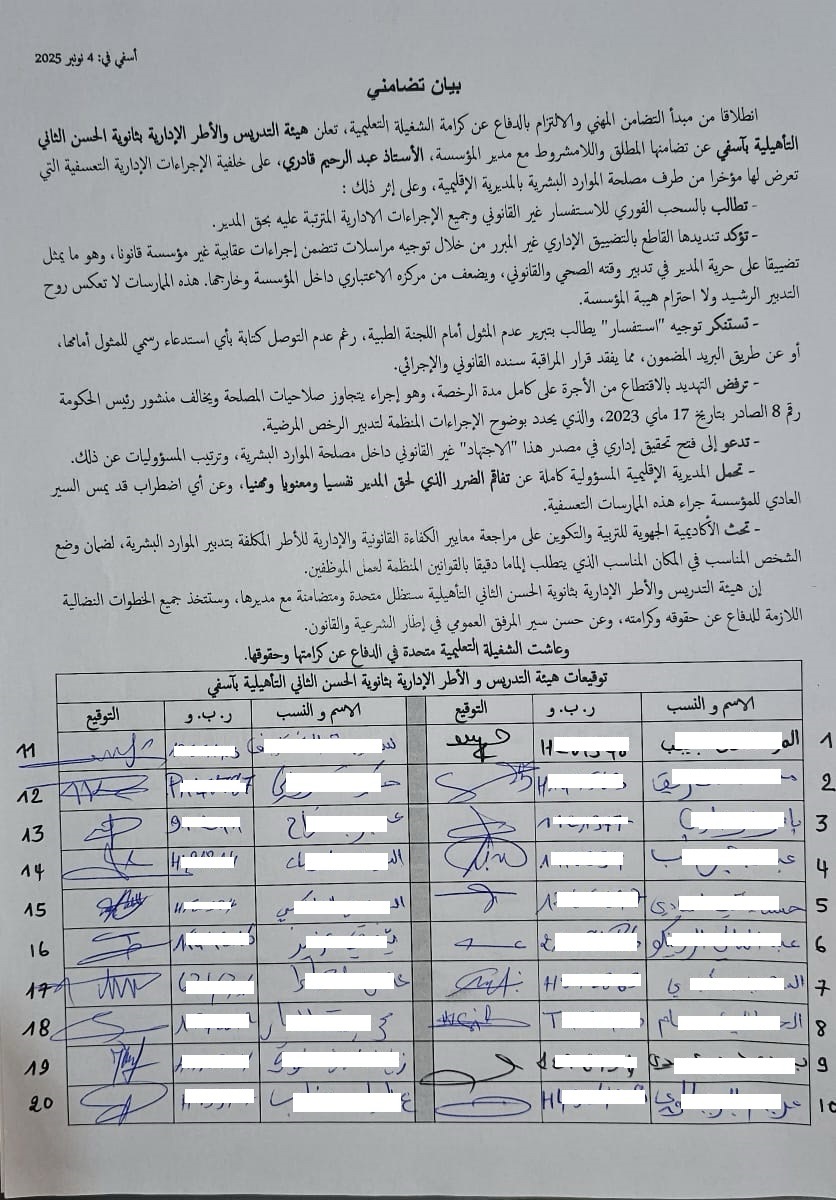 أسفي في: 4 نونبر 2025
بيان تضامني
انطلاقا من مبدأ التضامن المهني والالتزام بالدفاع عن كرامة الشغيلة التعليمية، تعلن هيئة التدريس والأطر الإدارية بثانوية الحسن الثاني
التأهيلية بآسفي عن تضامنها المطلق واللامشروط مع مدير المؤسسة، الأستاذ عبد الرحيم قادري، على خلفية الإجراءات الإدارية التعسفية التي
تعرض لها مؤخرا من طرف مصلحة الموارد البشرية بالمديرية الإقليمية، وعلى إثر ذلك :
- تطالب بالسحب الفوري للاستفسار غير القانوني وجميع الإجراءات الادارية المترتبة عليه بحق المدير.
- تؤكد تنديدها القاطع بالتضييق الإداري غير المبرر من خلال توجيه مراسلات تتضمن إجراءات عقابية غير مؤسسة قانونا، وهو ما يمثل
تضييقا على حرية المدير في تدبير وقته الصحي والقانوني، ويضعف من مركزه الاعتباري داخل المؤسسة وخارجها. هذه الممارسات لا تعكس روح
التدبير الرشيد ولا احترام هيبة المؤسسة.
- تستنكر توجيه "استفسار" يطالب بتبرير عدم المثول أمام اللجنة الطبية، رغم عدم التوصل كتابة بأي استدعاء رسمي للمثول أمامها،
أو عن طريق البريد المضمون، مما يفقد قرار المراقبة سنده القانوني والإجرائي.
- ترفض التهديد بالاقتطاع من الأجرة على كامل مدة الرخصة، وهو إجراء يتجاوز صلاحيات المصلحة ويخالف منشور رئيس الحكومة
رقم 8 الصادر بتاريخ 17 ماي 2023، والذي يحدد بوضوح الإجراءات المنظمة لتدبير الرخص المرضية.
- تدعو إلى فتح تحقيق إداري في مصدر هذا "الاجتهاد" غير القانوني داخل مصلحة الموارد البشرية، وترتيب المسؤوليات عن ذلك.
- تحمل المديرية الإقليمية المسؤولية كاملة عن تفاقم الضرر الذي لحق المدير نفسيا ومعنويا ومهنيا، وعن أي اضطراب قد يمس السير
العادي للمؤسسة جراء هذه الممارسات التعسفية.
- تحث الأكاديمية الجهوية للتربية والتكوين على مراجعة معايير الكفاءة القانونية والإدارية للأطر المكلفة بتدبير الموارد البشرية، لضمان وضع
الشخص المناسب في المكان المناسب الذي يتطلب إلماما دقيقا بالقوانين المنظمة لعمل الموظفين.
إن هيئة التدريس والأطر الإدارية بثانوية الحسن الثاني التأهيلية ستظل متحدة ومتضامنة مع مديرها، وستتخذ جميع الخطوات النضالية
اللازمة للدفاع عن حقوقه وكرامته، وعن حسن سير المرفق العمومي في إطار الشرعية والقانون.
وعاشت الشغيلة التعليمية متحدة في الدفاع عن كرامتها وحقوقها.
توقيعات هيئة التدريس و الأطر الإدارية بثانوية الحسن الثاني التأهيلية بآسفي
الاسم و النسب ر.ب.و التوقيع الاسم و النسب ر.ب.و التوقيع
1 11
2 12
3 13
4 14
5 15
6 16
7 17
8 18
9 19
10 20